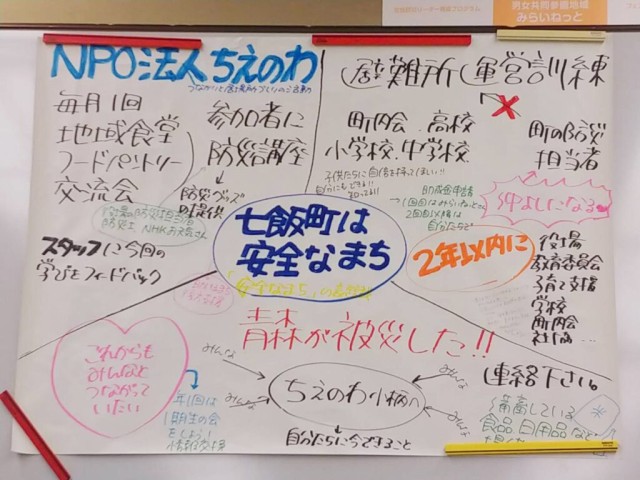 男女共同参画地域
みらいねっと
NPO法人ちえのわ
毎月1回
地域食堂
フードパントリー
交流会
参加者に
防災講座
防災グッズ
の提供
スタッフに今回の
学びをフィードバック
避難所運営訓練
町内会、高校
小学校、中学校
町の防災
担当者
仲よしになる
助成金申請
1回目はみらいねっと
2回目以後は
自分たちで
七飯町は
安全なまち
2年以内に
役場
教育委員会
子育て支援
学校
町内会
社協...
青森が被災した!!
これからも
みんなと
つながって
いたい
年1回は
1期生の会
をしよう!
情報交換
みんな
みんな
みんな
みんな
ちえのわ小柄へ
自分たちに今できること
連絡下さい。
備蓄している
食品、日用品など